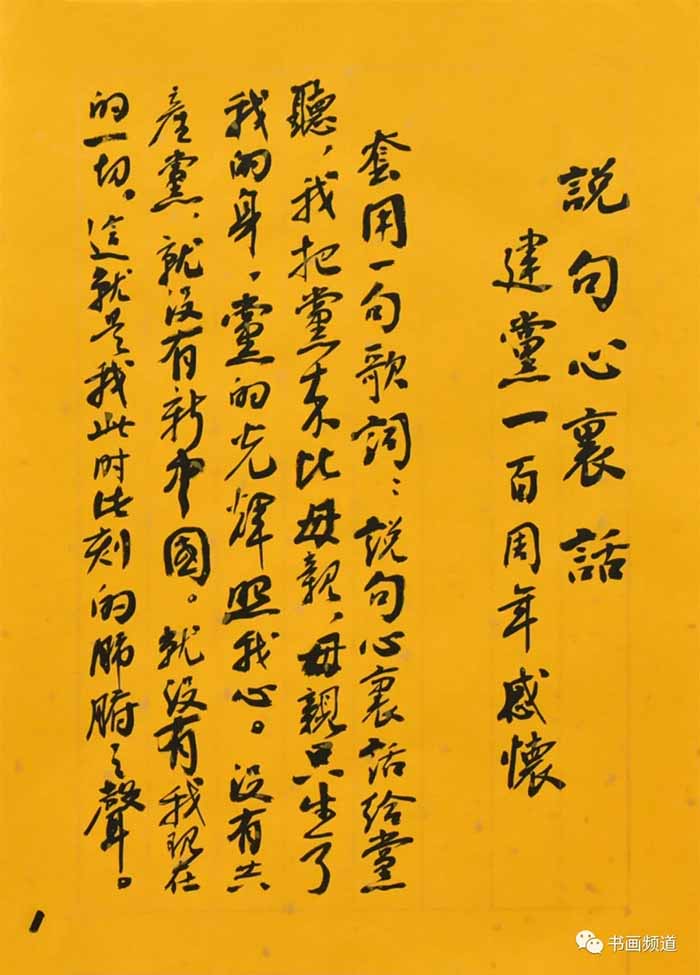 説句心裏話
建黨一百周年感懷
套用一句歌詞：説句心裏話給黨
聽，我把黨來比母親，母親只生了
我的身，黨的光輝照我心。没有共
產黨，就没有新中國。就没有我現在
的一切。這就是我此時此刻的肺腑之聲。
书画频道